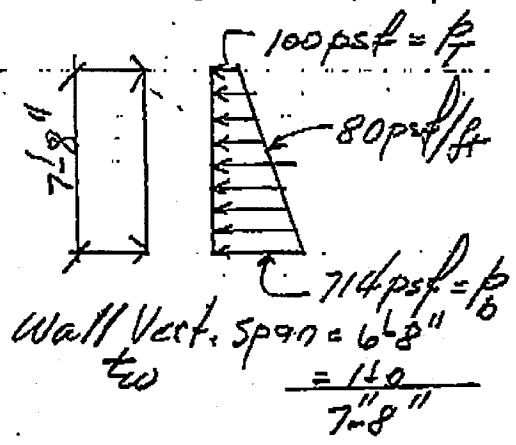 100psf = P_T
7'-8"
80psf/ft
714psf = P_b
Wall Vert. Span = 6'-8"
t_w = 1'-0
7'-8"